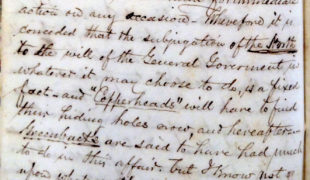 action on any occasion. Wherefore it is
conceded that the subjugation of the
to the will of the General Government in
whatever it may choose to do, is a fixed
fact and "Copperheads" will have to find
their hiding holes now, and hereafter
Greenbacks are said to have had much
to do in this affair. but I know not